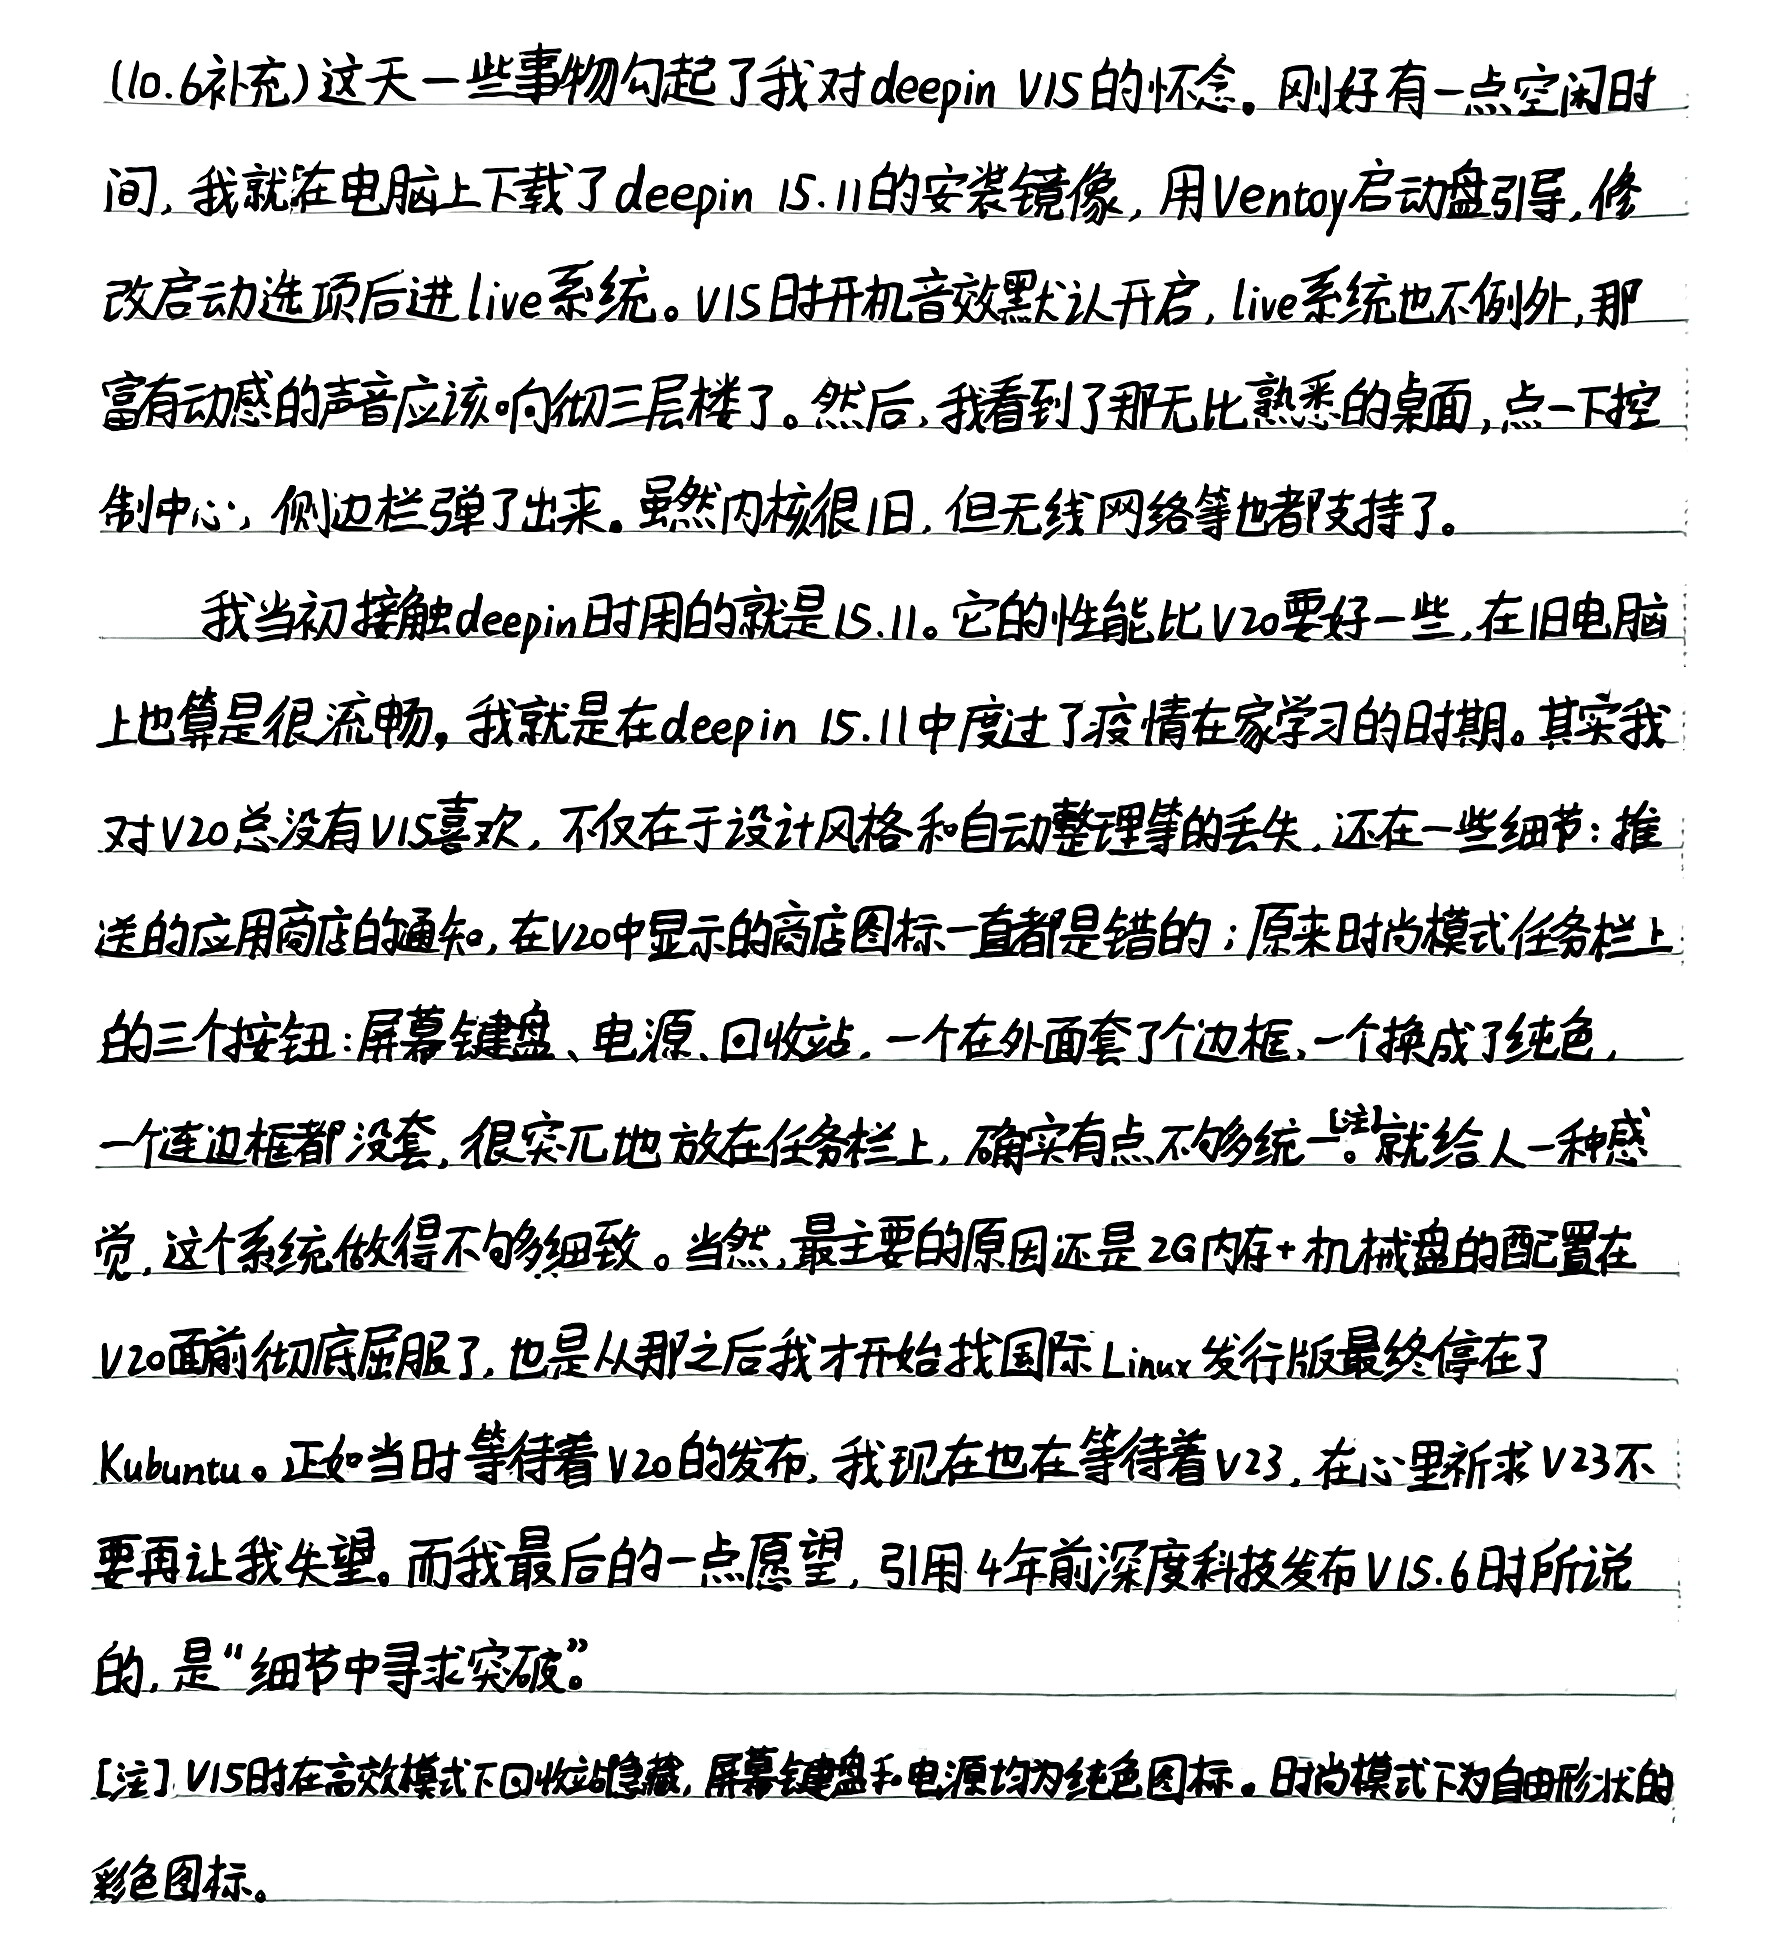 (10.6补充)这天一些事物勾起了我对deepin V15的怀念。刚好有一点空闲时
间,我就在电脑上下载了deepin 15.11的安装镜像,用Ventoy启动盘引导,修
改启动选项后进live系统。V15时开机音效默认开启,live系统也不例外,那
富有动感的声音应该响彻三层楼了。然后,我看到了那无比熟悉的桌面,点一下控
制中心,侧边栏弹了出来。虽然内核很旧,但无线网络等也都支持了。
我当初接触deepin时用的就是15.11。它的性能比V20要好一些,在旧电脑
上也算是很流畅,我就是在deepin 15.11中度过了疫情在家学习的时期。其实我
对V20总没有V15喜欢,不仅在于设计风格和自动整理等的丢失,还在一些细节:推
送的应用商店的通知,在V20中显示的商店图标一直都是错的;原来时尚模式任务栏上
的三个按钮:屏幕键盘、电源、回收站,一个在外面套了个边框,一个换成了纯色,
一个连边框都没套,很突兀地放在任务栏上,确实有点不够统一[注]。就给人一种感
觉,这个系统做得不够细致。当然,最主要的原因还是2G内存+机械盘的配置在
V20面前彻底屈服了,也是从那之后我才开始找国际Linux发行版最终停在了
Kubuntu。正如当时等待着V20的发布,我现在也在等待着V23,在心里祈求V23不
要再让我失望。而我最后的一点愿望,引用4年前深度科技发布V15.6时所说
的,是“细节中寻求突破”。
[注]V15时在高效模式下回收站隐藏,屏幕键盘和电源均为纯色图标。时尚模式下为自由形状的
彩色图标。